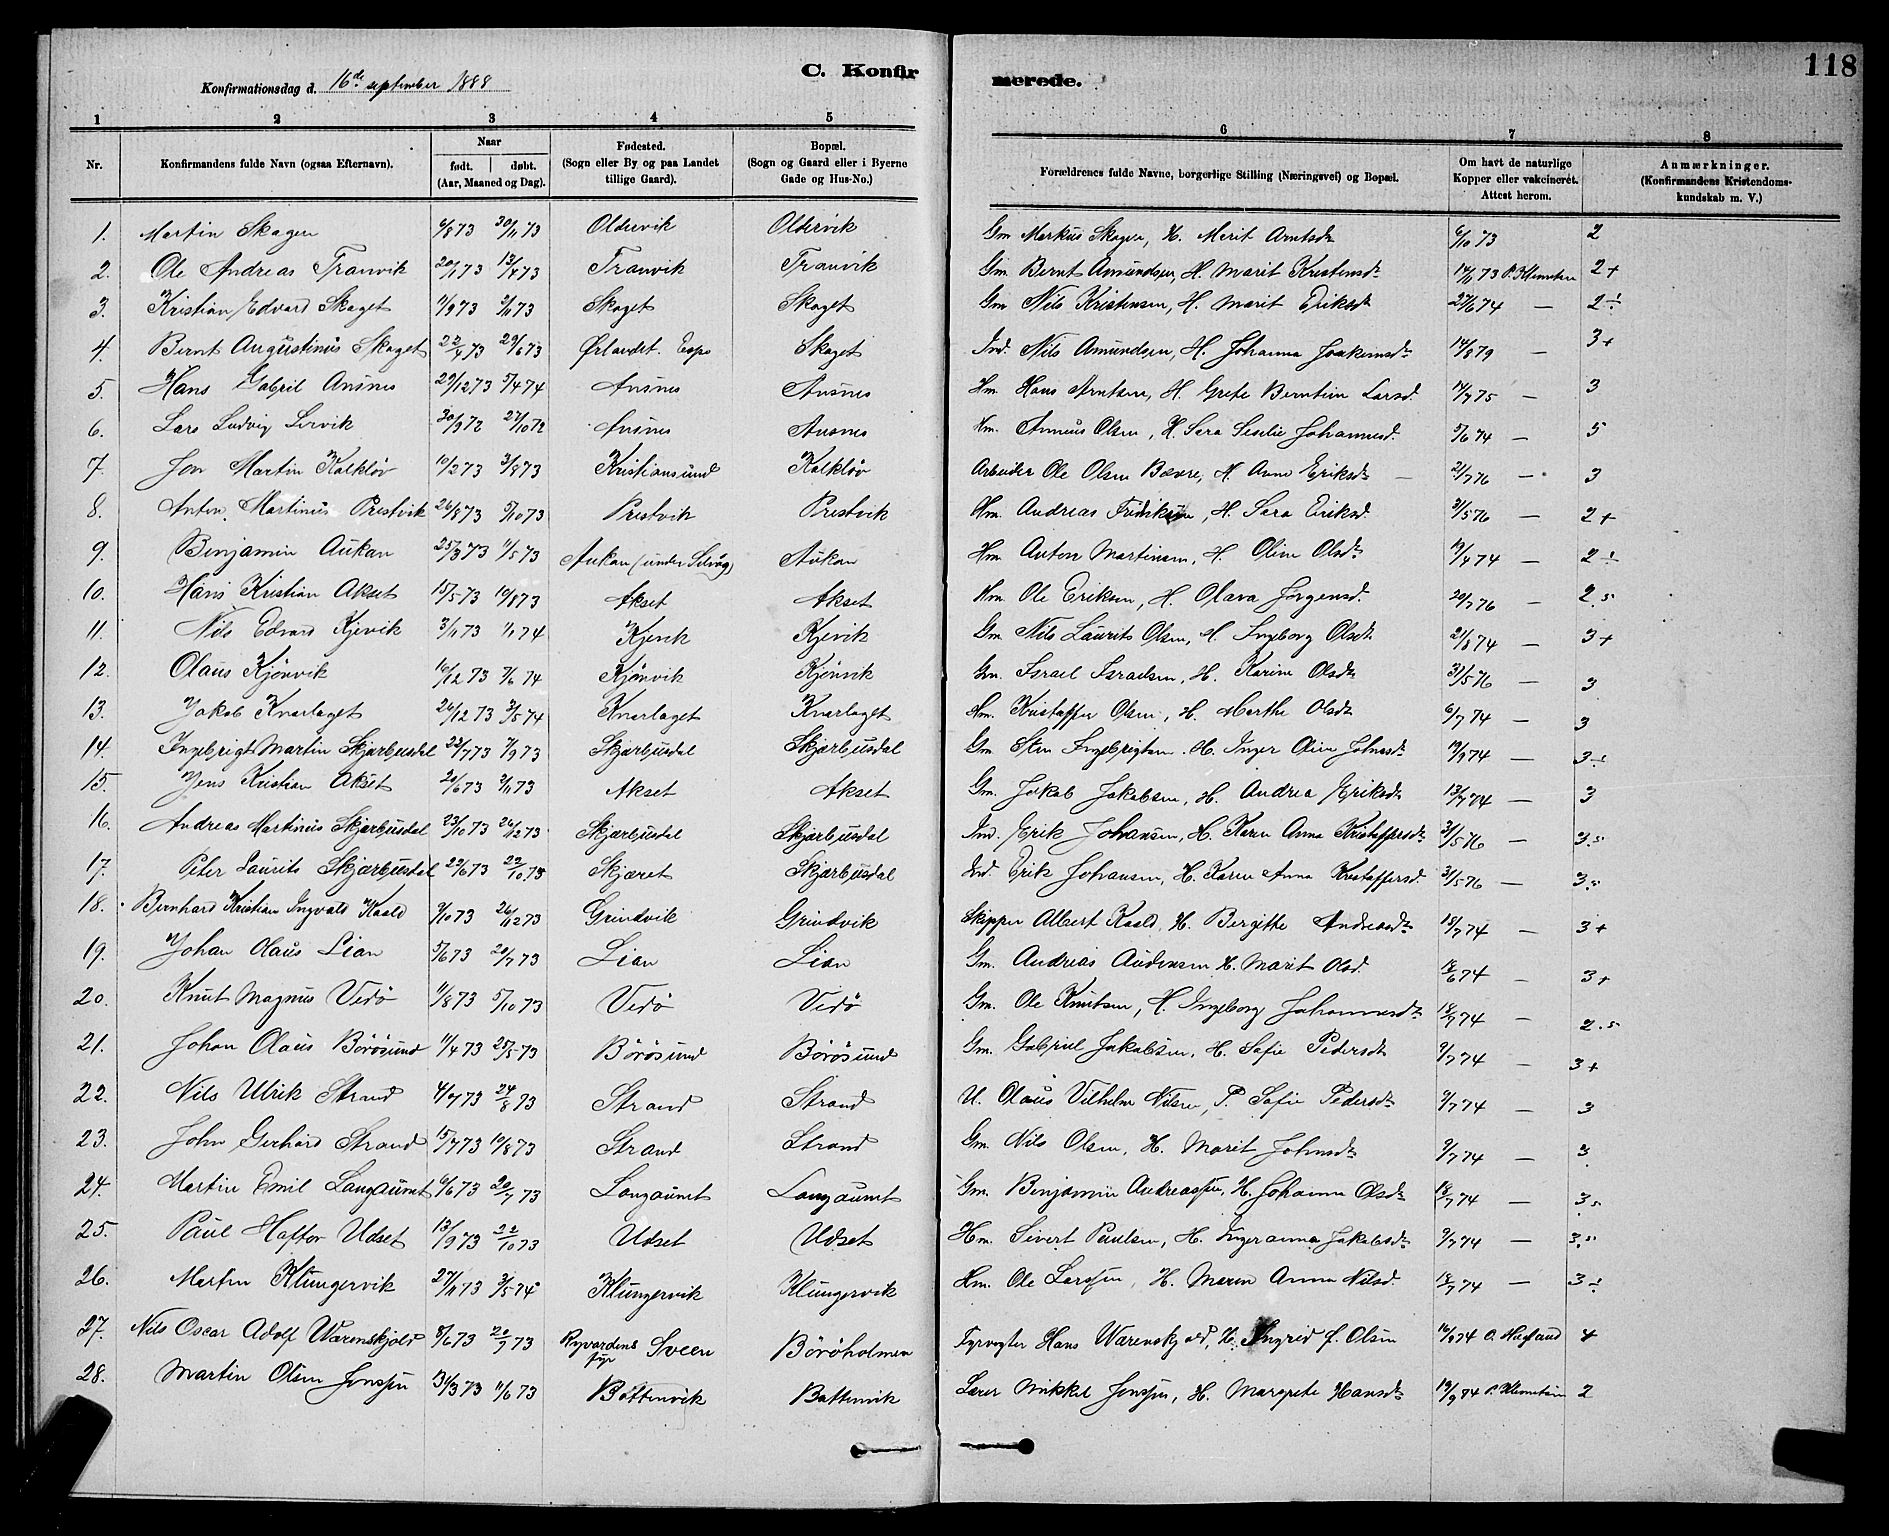 118
C. Konfirmerede.
Konfirmationsdag d. 16de september 1888
1 2 3 4 5 6 7 8
Nr. Konfirmandens fulde Navn (ogsaa Efternavn). Naar født. døbt. (Aar, Maaned og Dag). Fødested. (Sogn eller By og paa Landet tillige Gaard). Bopæl. (Sogn og Gaard eller i Byerne Gade og Hus-No.) Forældrenes fulde Navne, borgerlige Stilling (Næringsvei) og Bopæl. Om havt de naturlige Kopper eller vakcineret. Attest herom. Anmærkninger. (Konfirmandens Kristendomskundskab m. V.)
1. Martin Skagen 6/8 73 30/11 73 Oldervik Oldervik Gm Markus Skagen, H. Merit Arntsdr 6/10 73 2
2. Ole Andreas Tranvik 20/1 73 13/4 73 Tranvik Tranvik Gm. Bernt Amundsen, H. Marit Kristensdr 14/11 73 2+
3. Kristian Edvard Skaget 11/9 73 2/11 73 Skaget Skaget Gm Nils Kristensen, H. Marit Eriksdr 27/6 74 — 2÷
4. Bernt Augustinus Skaget 22/4 73 29/6 73 Ørlandet. Skaget Ind. Nils Amundsen, H. Johanna Joakimsdr 14/8 79 — 3+
5. Hans Gabriel Ansnes 29/12 73 5/4 74 Ansnes Ansnes Hm. Hans Arntsen, H. Grete Berntine Larsd. 14/7 75 — 3
6. Lars Ludvig Lervik 30/9 72 27/10 72 Ansnes Ansnes Hm. Olsen, H. Sara Johannesd. 5/6 74 — 5
7. Jon Martin Kalkløv 10/2 73 3/8 73 Kristiansund Kalkløv Arbeider Ole Olsen Bævre, H. Anne Eriksdr 21/7 76 — 3
8. Anton Martinus Prestvik 26/8 73 5/10 73 Prestvik Prestvik Hm. Andreas Fredriksen, H. Sara Eriksd. 31/5 76 — 2+
9. Benjamin Aukan 25/3 73 11/5 73 Aukan (under Selvåg) Aukan Hm Anton Martinsen, H. Oline Olsdr 19/4 74 — 2÷
10. Hans Kristian Akset 15/5 73 10/8 73 Akset Akset Hm. Ole Eriksen, H. Olava Jørgensd. 20/7 76 — 2.5
11. Nils Edvard Kjevik 3/11 73 1/1 74 Kjevik Kjevik Gm. Nils Laurits Olsen, H. Ingeborg Olsdr 21/8 74 — 3+
12. Olaus Kjønvik 16/12 73 7/6 74 Kjønvik Kjønvik Gm. Israel Israelsen, H. Karine Olsdr 31/5 76 — 3
13. Jakob Knarlaget 26/12 73 3/5 74 Knarlaget Knarlaget Hm. Kristoffer Olsen, H. Marthe Olsdr 6/7 74 — 3
14. Ingebrigt Martin Skjærbusdal 23/7 73 7/9 73 Skjærbusdal Skjærbusdal Gm Sten Ingebrigtsen. H. Inger Oline Johnsdr 19/9 74 — 3÷
15. Jens Kristian Akset 20/6 73 2/11 73 Akset Akset Gm. Jakob Jakobsen, H. Andrea Eriksdr 13/7 74 — 3
16. Andreas Martinus Skjærbusdal 23/10 73 26/12 73 Skjærbusdal Skjærbusdal Ind. Erik Johansen, H. Karen Anna Kristoffersdr 31/5 76 — 3.5
17. Peter Laurits Skjærbusdal 22/6 73 22/10 73 Skjæret Skjærbusdal Ind. Erik Johansen, H. Karen Anna Kristoffersd. 31/5 76 — 3.5
18. Bernhard Kristian Ingvald Kaald 3/10 73 26/12 73 Grindvik Grindvik Skipper Albert Kaald, H. Bergitte Andreasdr 18/7 74 — 3+
19. Johan Olaus Lian 5/6 73 20/7 73 Lian Lian Gm. Andreas Audensen H. Marit Olsd. 18/6 74 — 3+
20. Knut Magnus Vedø 11/8 73 5/10 73 Vedø Vedø Gm. Ole Knutsen, H. Ingeborg Johannesdr 18/9 74 — 2.5
21. Johan Olaus Børøsund 11/4 73 25/5 73 Børøsund Børøsund Gm. Gabriel Jakobsen, H. Sofie Pedersdr 9/7 74 — 3+
22. Nils Ulrik Strand 4/7 73 24/8 73 Strand Strand U. Olaus Vilhelm Nilsen, P. Sofie Pedersdr 9/7 74 — 3
23. John Gerhard Strand 15/7 73 10/8 73 Strand Strand Gm. Nils Olsen, H. Marit Johnsdr 9/7 74 — 3
24. Martin Emil Langaunet 6/6 73 20/7 73 Langaunet Langaunet Gm. Benjamin Andreassen, H. Johanna Olsdr 18/7 74 — 3.5
25. Paul Haftor Udset 13/9 73 22/10 73 Udset Udset Hm. Sivert Paulsen, H. Inger anna Jakobsdr 9/7 74 — 3.5
26. Martin Klungervik 27/11 73 3/5 74 Klungervik Klungervik Hm. Ole Larssen, H. Maren Anna Nilsd. 18/7 74 — 3÷
27. Nils Oscar Adolf Warenskjold 8/6 73 20/7 73 Ryvardens fyr Sveen Børøholmen Fyrvogter Hans Warenskjold, H. Ingrid f. Olsen 16/9 74 4
28. Martin Olsen Jonssen 31/3 73 11/6 73 Battenvik Battenvik Lærer Mikkel Jonssen, H. Margrete Hansdr 19/9 74 2